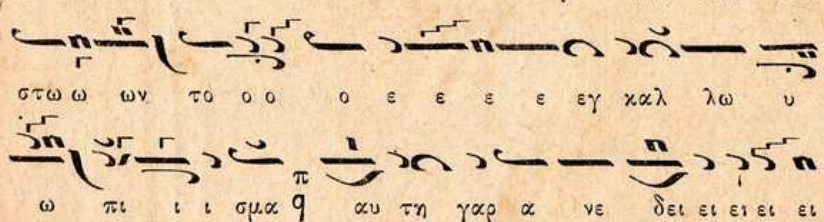 στω ω ων το ο ο ο ε ε ε ε εγ καλ λω υ
ω πι ι ι σμα π q αυ τη γαρ α νε δει ει ει ει ει